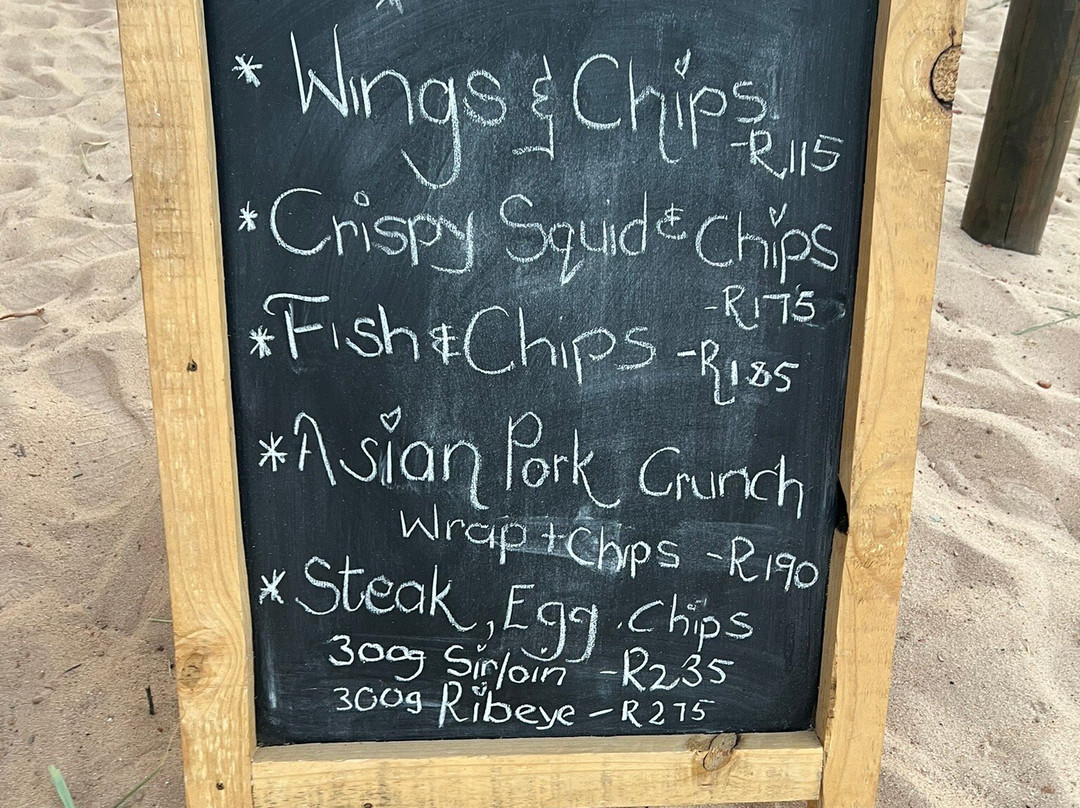 * Wings & Chips
-R115
* Crispy Squid & Chips
-R175
* Fish & Chips -R185
* Asian Pork Crunch
Wrap + Chips -R190
* Steak, Egg, Chips
300g Sirloin -R235
300g Ribeye - R275